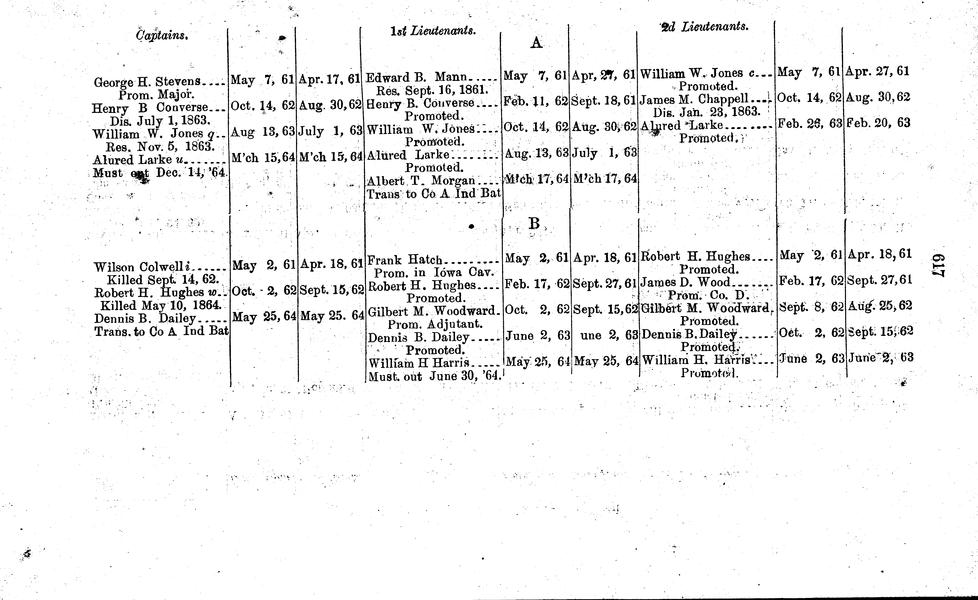 Captains. 1st Lieutenants. 2d Lieutenants.
A
George H. Stevens.... May 7, 61 Apr. 17, 61 Edward B. Mann..... May 7, 61 Apr, 27, 61 William W. Jones c... May 7, 61 Apr. 27, 61
Prom. Major. Res. Sept. 16, 1861. Promoted.
Henry B Converse... Oct. 14, 62 Aug. 30, 62 Henry B. Converse.... Feb. 11, 62 Sept. 18, 61 James M. Chappell.... Oct. 14, 62 Aug. 30, 62
Dis. July 1, 1863. Promoted. Dis. Jan. 23, 1863.
William W. Jones q.. Aug 13, 63 July 1, 63 William W. Jones..... Oct. 14, 62 Aug. 30, 62 Alured Larke........ Feb. 26, 63 Feb. 20, 63
Res. Nov. 5, 1863. Promoted. Promoted.
Alured Larke u....... M'ch 15, 64 M'ch 15, 64 Alured Larke........ Aug. 13, 63 July 1, 63
Must out Dec. 14, '64. Promoted.
Albert T. Morgan.... M'ch 17, 64 M'ch 17, 64
Trans to Co A Ind Bat
B
Wilson Colwell i...... May 2, 61 Apr. 18, 61 Frank Hatch......... May 2, 61 Apr. 18, 61 Robert H. Hughes.... May 2, 61 Apr. 18, 61
Killed Sept. 14, 62. Prom. in Iowa Cav. Promoted.
Robert H. Hughes w.. Oct. 2, 62 Sept. 15, 62 Robert H. Hughes.... Feb. 17, 62 Sept. 27, 61 James D. Wood...... Feb. 17, 62 Sept. 27, 61
Killed May 10, 1864. Promoted. Prom. Co. D.
Dennis B. Dailey..... May 25, 64 May 25. 64 Gilbert M. Woodward. Oct. 2, 62 Sept. 15, 62 Gilbert M. Woodward. Sept. 8, 62 Aug. 25, 62
Trans. to Co A Ind Bat Prom. Adjutant. Promoted.
Dennis B. Dailey..... June 2, 63 une 2, 63 Dennis B. Dailey..... Oct. 2, 62 Sept. 15, 62
Promoted. Promoted.
William H Harris..... May 25, 64 May 25, 64 William H. Harris.... June 2, 63 June 2, 63
Must. out June 30, '64. Promoted.
617